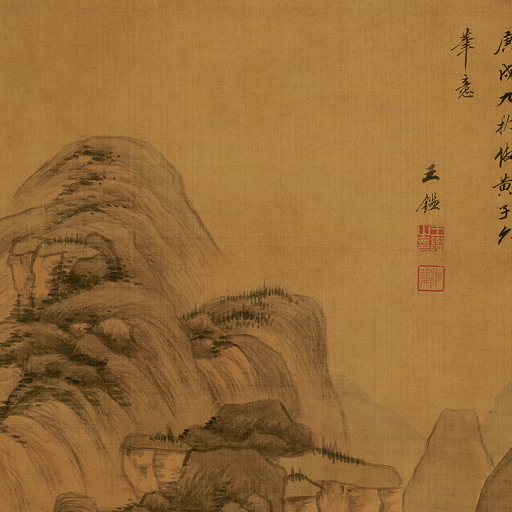 庚戌九秋倣黄子久
筆意
王鑑